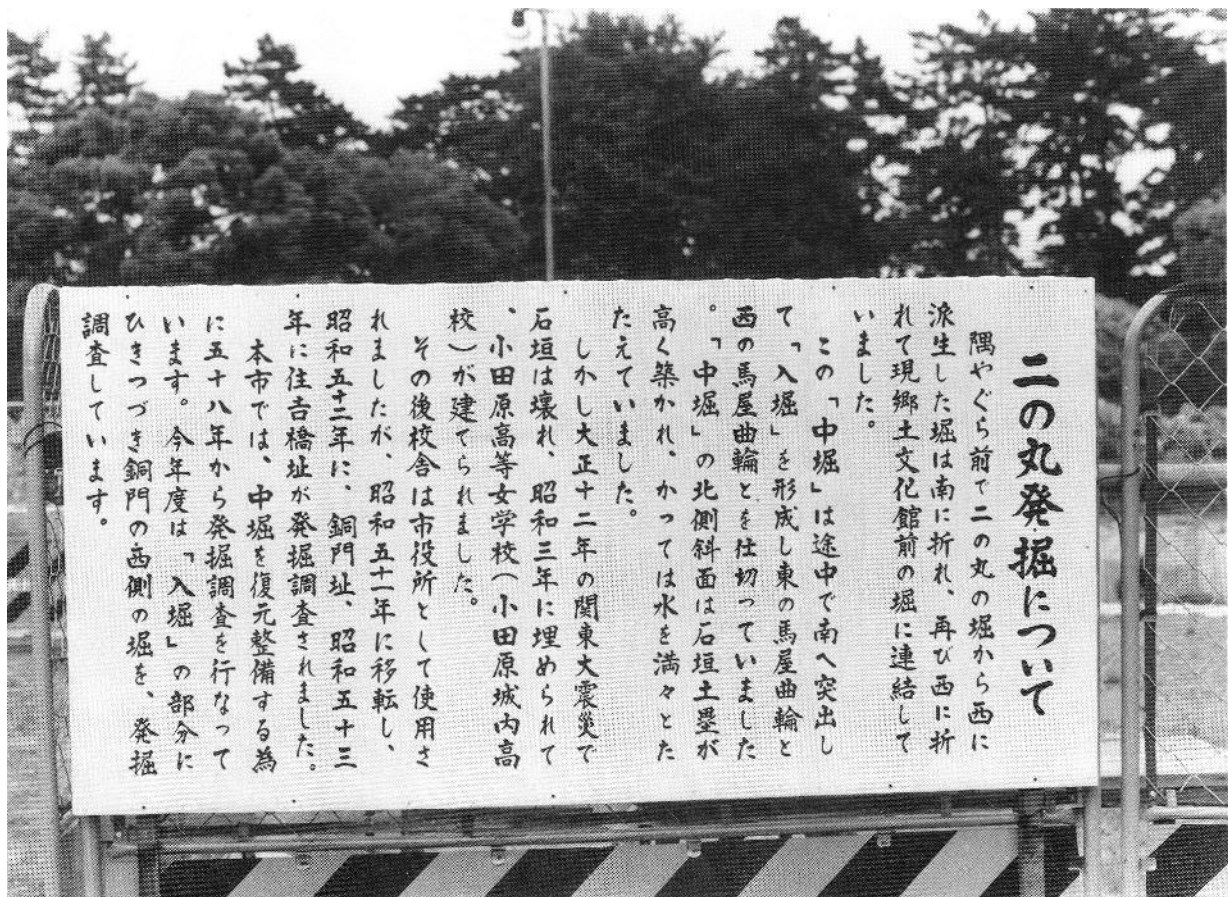 二の丸発掘について
隅やぐら前で二の丸の堀から西に
派生した堀は南に折れ、再び西に折
れて現郷土文化館前の堀に連結して
いました。
この「中堀」は途中で南へ突出し
て「入堀」を形成し東の馬屋曲輪と
西の馬屋曲輪とを仕切っていました
。「中堀」の北側斜面は石垣土塁が
高く築かれ、かつては水を満々とた
たえていました。
しかし大正十二年の関東大震災で
石垣は壊れ、昭和三年に埋められて
、小田原高等女学校(小田原城内高
校)が建てられました。
その後校舎は市役所として使用さ
れましたが、昭和五十一年に移転し、
昭和五十二年に、銅門址、昭和五十三
年に住吉橋址が発掘調査されました。
本市では、中堀を復元整備する為
に五十八年から発掘調査を行なって
います。今年度は「入堀」の部分に
ひきつづき銅門の西側の堀を、発掘
調査しています。